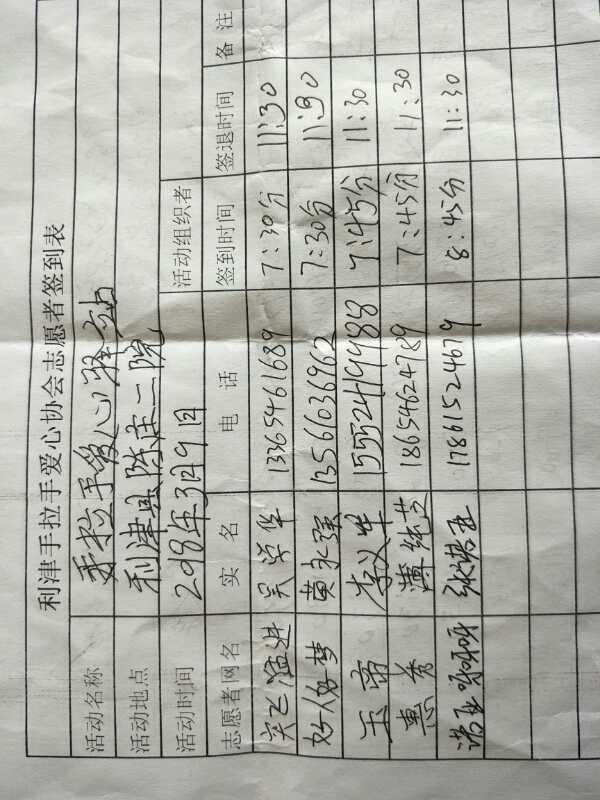 利津手拉手爱心协会志愿者签到表
活动名称 手拉手爱心驿站
活动地点 利津县陈庄二院
活动时间 2018年3月9日 活动组织者
志愿者网名 实名 电话 签到时间 签退时间 备注
突飞猛进 吴学华 13365461689 7:30分 11:30
好似梦 黄永强 13561036962 7:30分 11:30
玉帝 李义华 15552419988 7:45分 11:30
惠秀 薄纯芝 18654624789 7:45分 11:30
诺亚 张诺亚 17861524679 8:45分 11:30